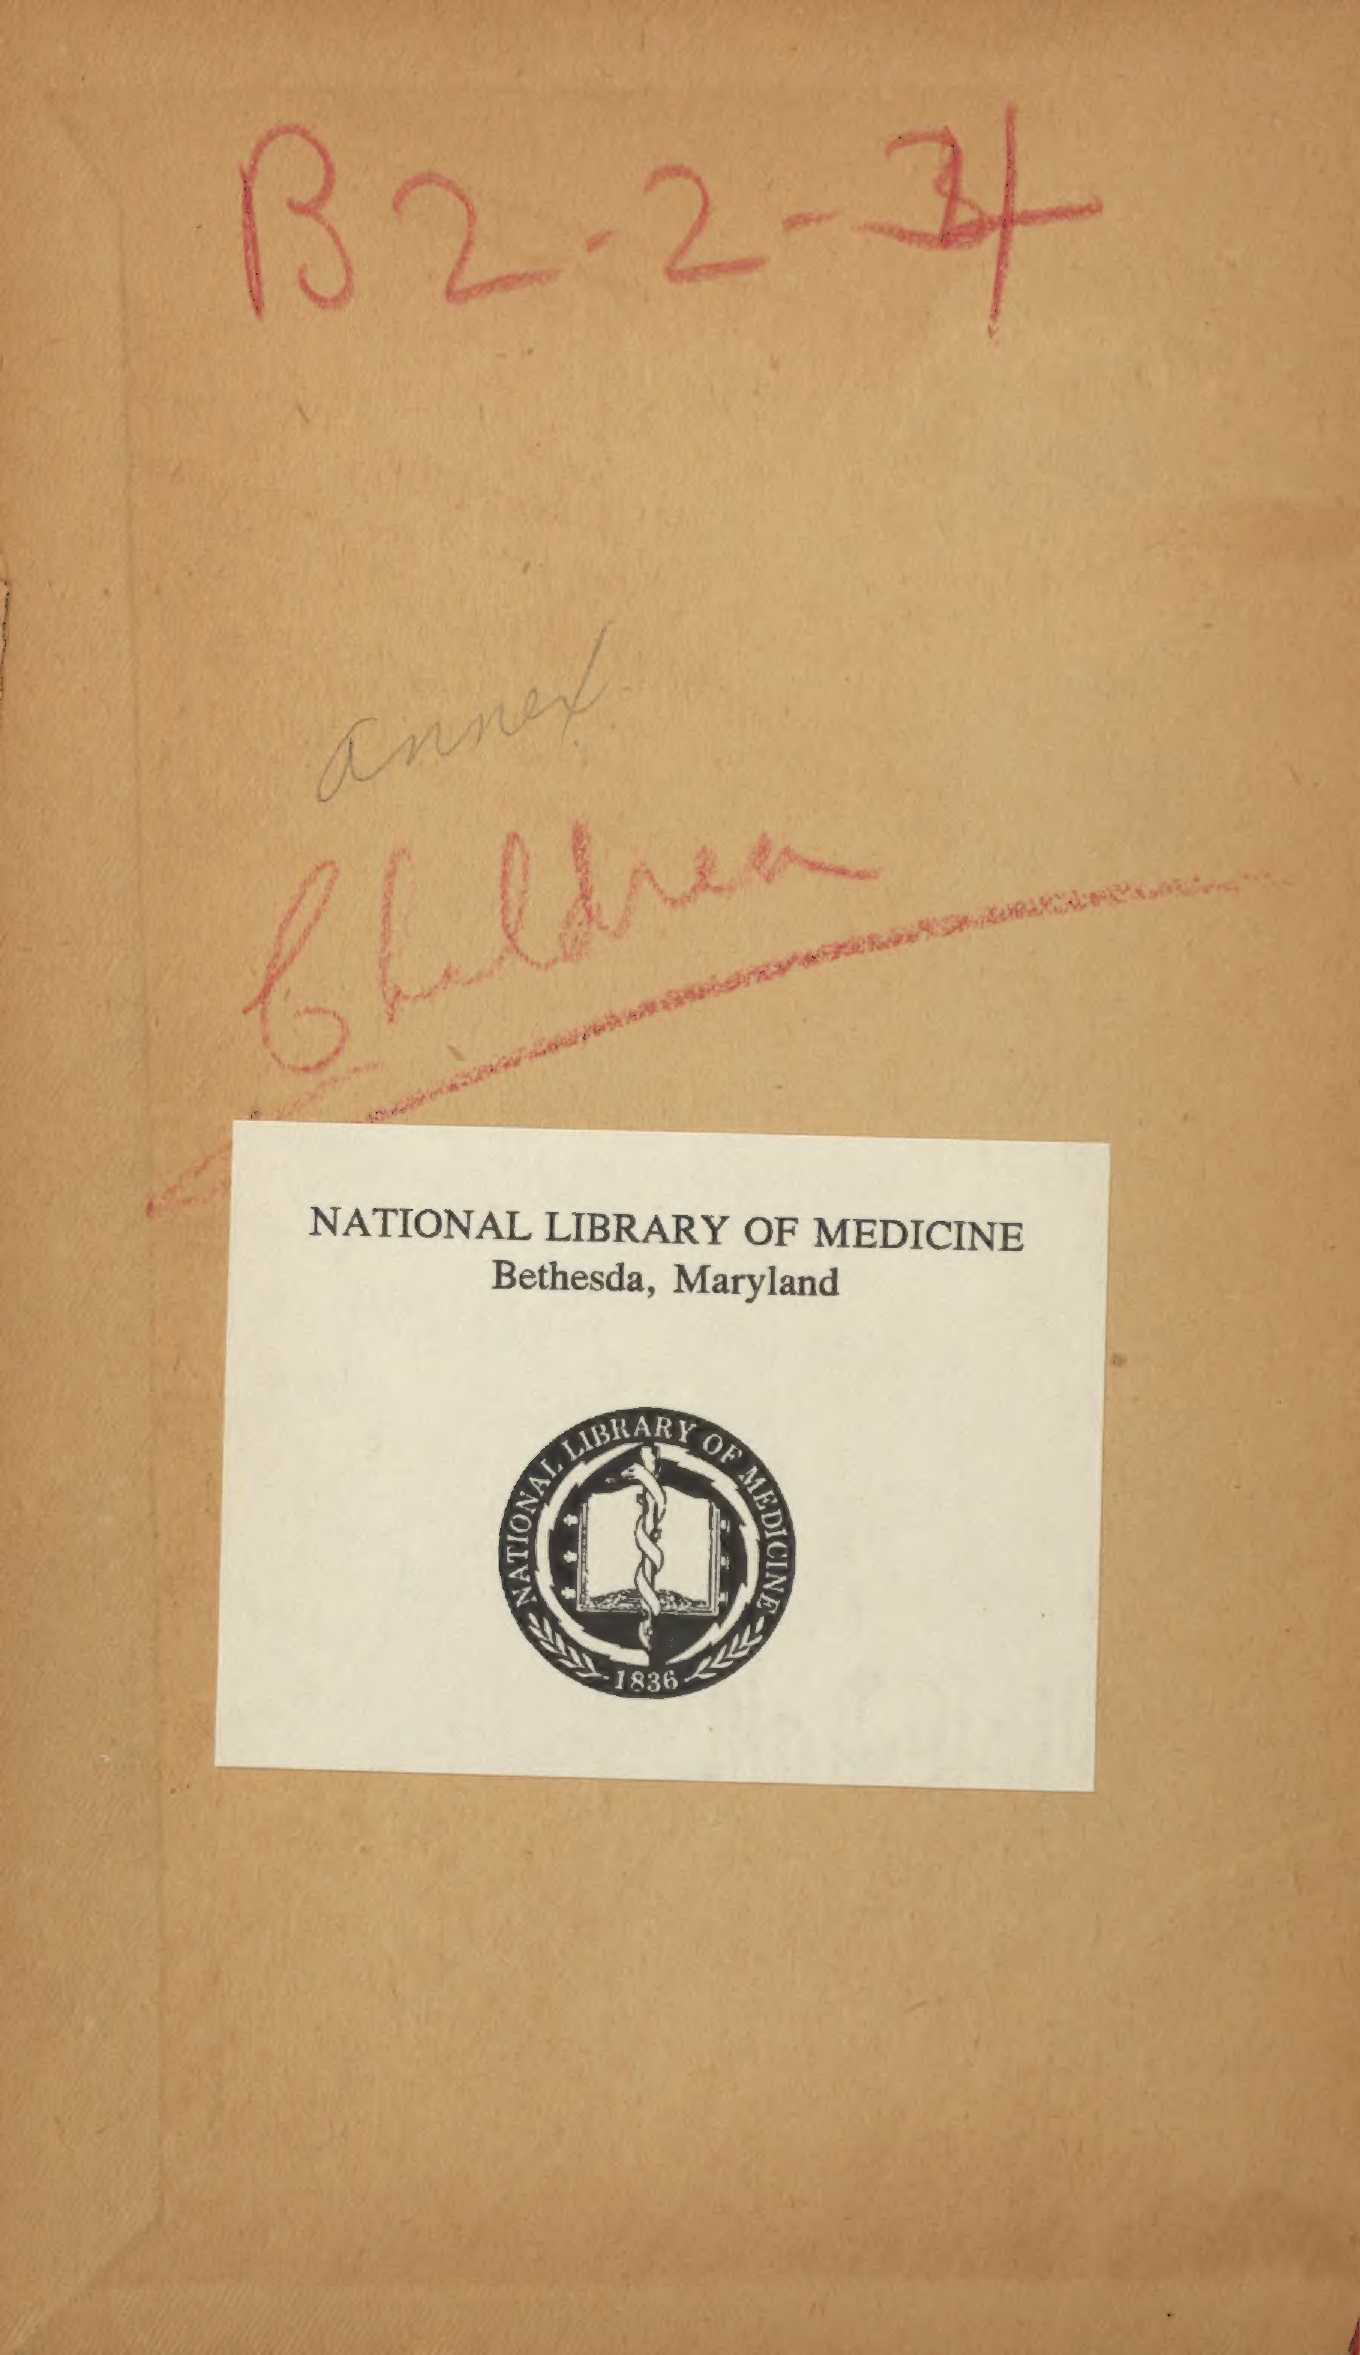 B2-2-4
annex
Children
NATIONAL LIBRARY OF MEDICINE
Bethesda, Maryland
NATIONAL LIBRARY OF MEDICINE
1836